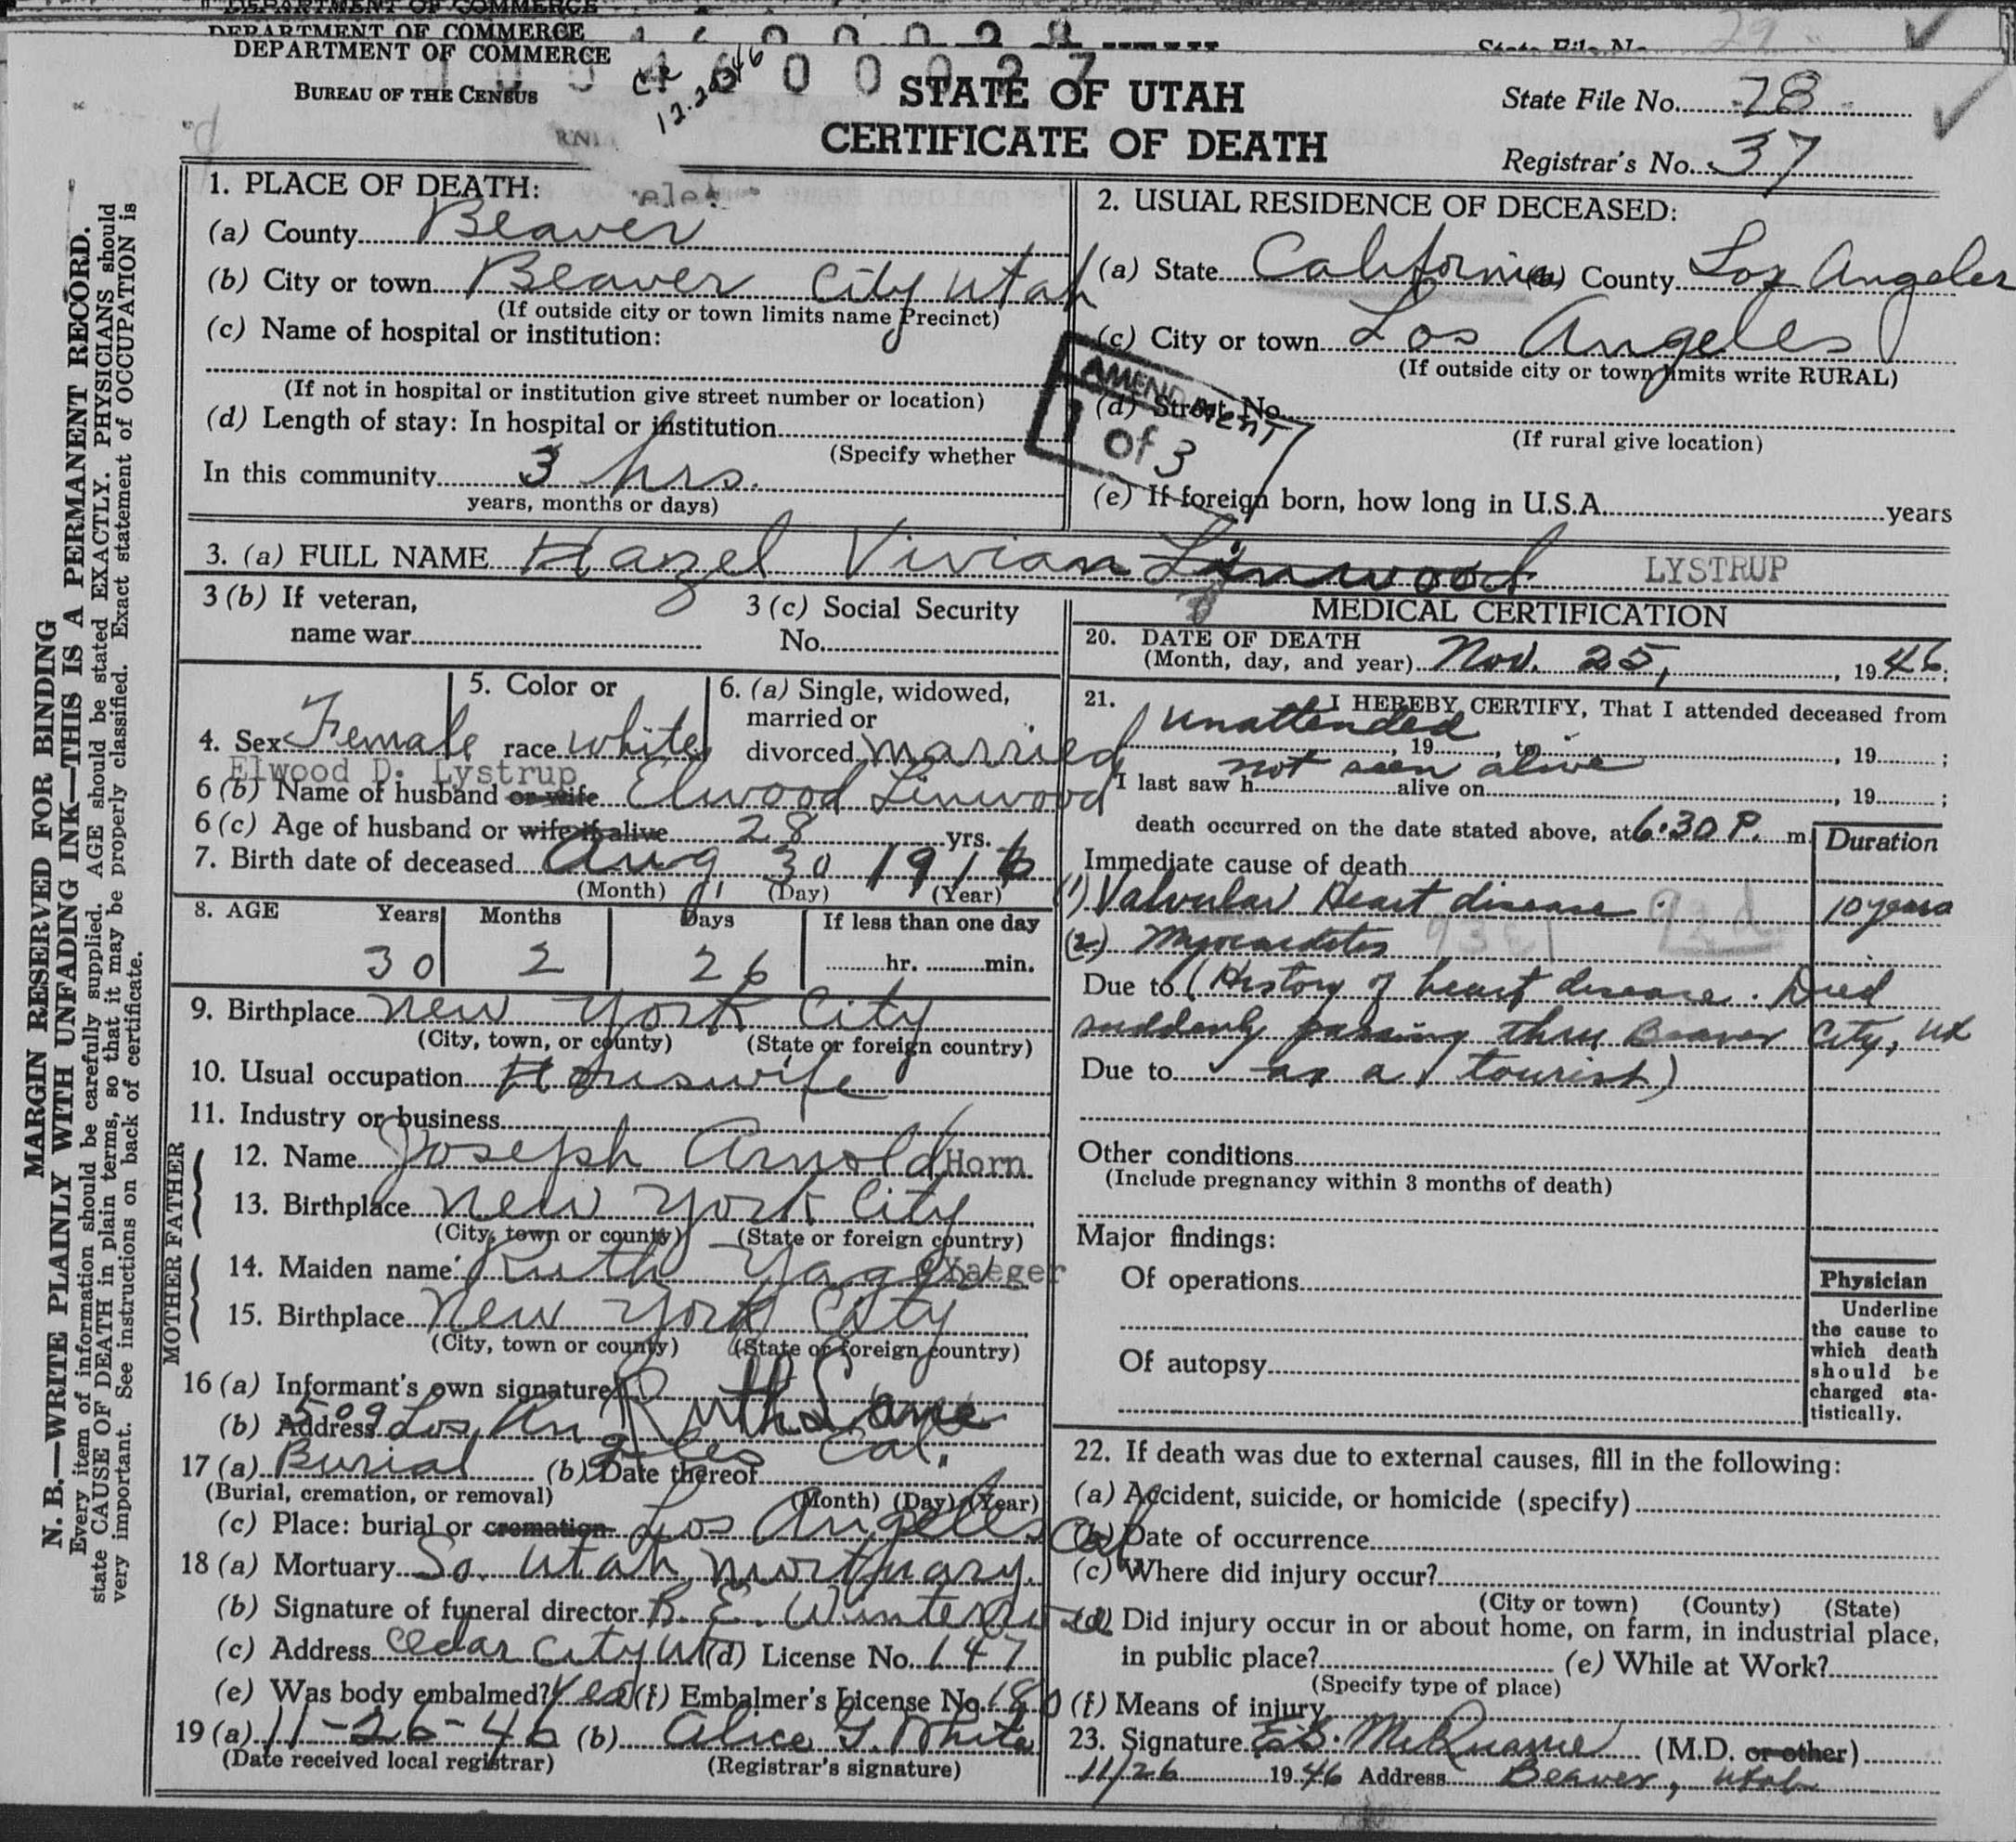 DEPARTMENT OF COMMERCE
DEPARTMENT OF COMMERCE
DEPARTMENT OF COMMERCE
BUREAU OF THE CENSUS
STATE OF UTAH
CERTIFICATE OF DEATH
State File No. 29
State File No. 28
Registrar's No. 37
MARGIN RESERVED FOR BINDING
N. B.—WRITE PLAINLY WITH UNFADING INK—THIS IS A PERMANENT RECORD.
Every item of information should be carefully supplied. AGE should be stated EXACTLY. PHYSICIANS should
state CAUSE OF DEATH in plain terms, so that it may be properly classified. Exact statement of OCCUPATION is
very important. See instructions on back of certificate.
1. PLACE OF DEATH:
(a) County Beaver
(b) City or town Beaver City Utah
(If outside city or town limits name Precinct)
(c) Name of hospital or institution:
(If not in hospital or institution give street number or location)
(d) Length of stay: In hospital or institution
(Specify whether
In this community 3 hrs.
years, months or days)
2. USUAL RESIDENCE OF DECEASED:
(a) State California (b) County Los Angeles
(c) City or town Los Angeles
(If outside city or town limits write RURAL)
(d) Street No.
(If rural give location)
(e) If foreign born, how long in U.S.A. years
AMENDMENT
1 of 3
3. (a) FULL NAME Hazel Vivian Linwood LYSTRUP
3 (b) If veteran,
name war
3 (c) Social Security
No.
4. Sex Female
5. Color or
race white
6. (a) Single, widowed,
married or
divorced married
Elwood D. Lystrup
6 (b) Name of husband or wife Elwood Linwood
6 (c) Age of husband or wife if alive 28 yrs.
7. Birth date of deceased Aug 30 1916
(Month) (Day) (Year)
8. AGE Years Months Days If less than one day
30 2 26 hr. min.
9. Birthplace New York City
(City, town, or county) (State or foreign country)
10. Usual occupation Housewife
11. Industry or business
FATHER
12. Name Joseph Arnold Horn
13. Birthplace New York City
(City, town or county) (State or foreign country)
MOTHER
14. Maiden name Ruth Yager Yaeger
15. Birthplace New York City
(City, town or county) (State or foreign country)
16 (a) Informant's own signature Ruth Lane
(b) Address 509 Los Angeles Cal.
17 (a) Burial (b) Date thereof
(Burial, cremation, or removal) (Month) (Day) (Year)
(c) Place: burial or cremation Los Angeles Cal
18 (a) Mortuary So. Utah Mortuary.
(b) Signature of funeral director B. E.
(c) Address Cedar City Ut (d) License No. 147
(e) Was body embalmed? Yes (f) Embalmer's License No. 180
19 (a) 11-26-46 (b) Alice G. White
(Date received local registrar) (Registrar's signature)
MEDICAL CERTIFICATION
20. DATE OF DEATH
(Month, day, and year) Nov. 25, 1946;
21. I HEREBY CERTIFY, That I attended deceased from
unattended , 19 , to , 19 ;
I last saw h not seen alive alive on , 19 ;
death occurred on the date stated above, at 6:30 P. m.
Duration
Immediate cause of death
(1) Valvular Heart disease. 10 years
(2) Myocarditis 93c 92d
Due to (History of heart disease. Died
suddenly passing thru Beaver City, Ut
Due to as a tourist)
Other conditions
(Include pregnancy within 3 months of death)
Major findings:
Of operations
Of autopsy
Physician
Underline
the cause to
which death
should be
charged sta-
tistically.
22. If death was due to external causes, fill in the following:
(a) Accident, suicide, or homicide (specify)
(b) Date of occurrence
(c) Where did injury occur?
(City or town) (County) (State)
(d) Did injury occur in or about home, on farm, in industrial place,
in public place? (e) While at Work?
(Specify type of place)
(f) Means of injury
23. Signature (M.D. or other)
11/26 1946 Address Beaver, Utah